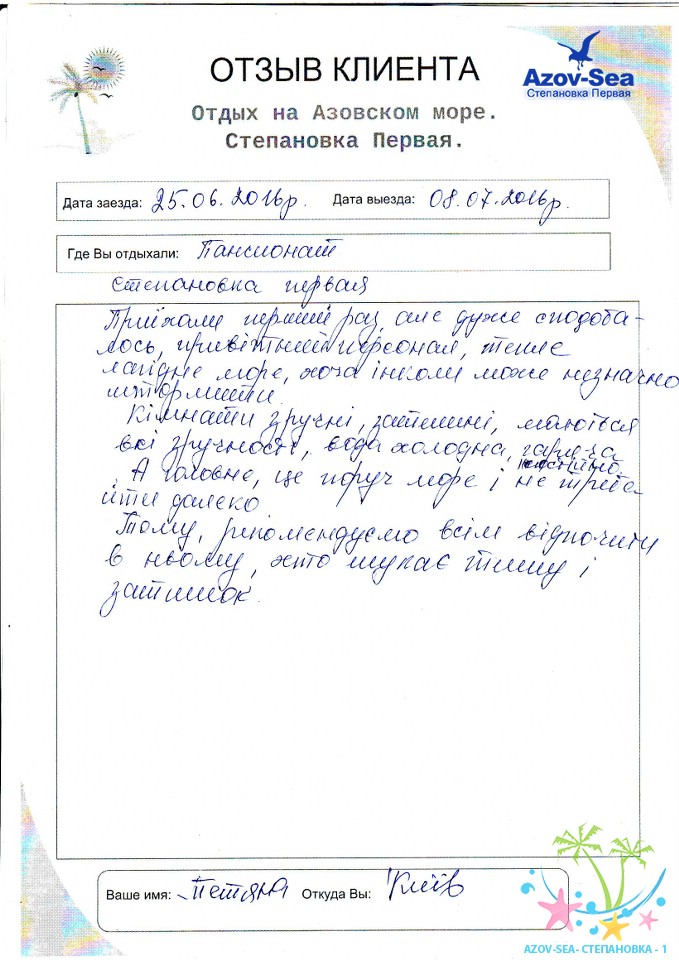 ОТЗЫВ КЛИЕНТА
Azov-Sea
Степановка Первая
Отдых на Азовском море.
Степановка Первая.
Дата заезда: 25.06.2016р. Дата выезда: 08.07.2016р.
Где Вы отдыхали: Пансионат
Степановка первая
Приїхали перший раз, але дуже сподоба-
лось, привітний персонал, тепле
лагідне море, хоча інколи може незначно
штормити.
Кімнати зручні, затишні, маються
всі зручності, вода холодна, гаряча
постійно.
А головне, це поруч море і не треба
йти далеко.
Тому, рекомендуємо всім відпочити
в ньому, хто шукає тишу і
затишок.
Ваше имя: Тетяна Откуда Вы: Київ
AZOV-SEA- СТЕПАНОВКА - 1